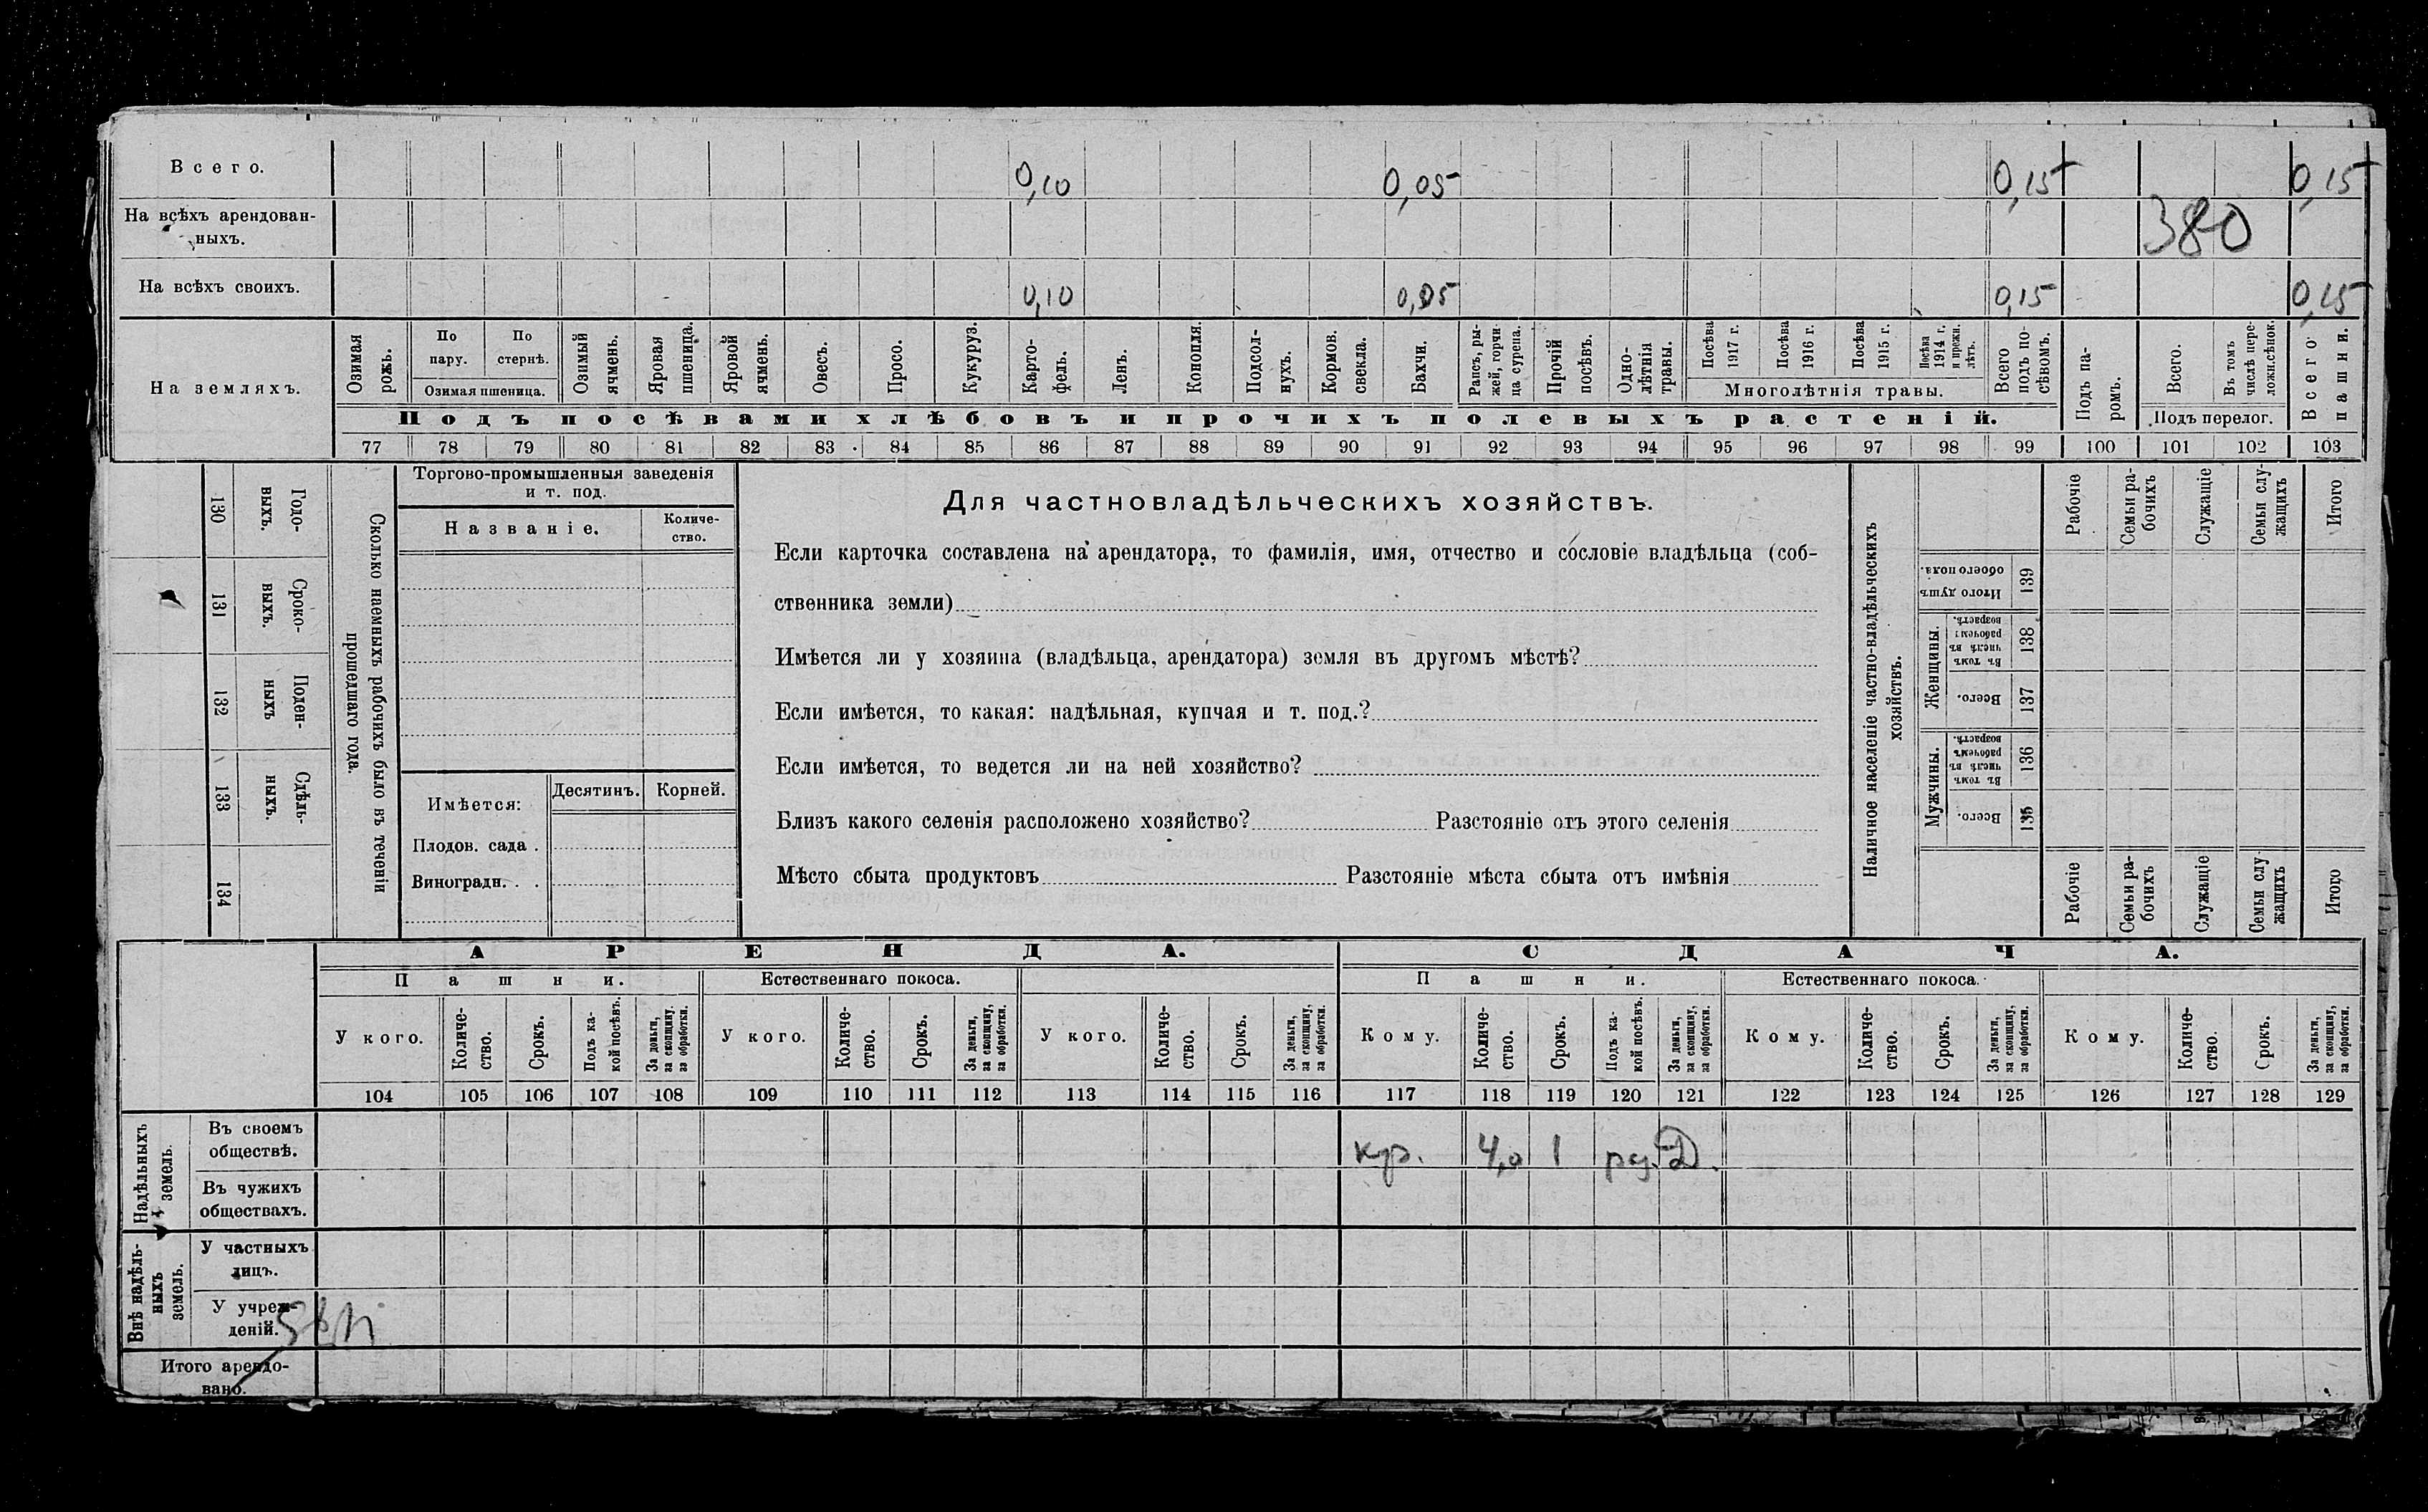 Всего. 0,10 0,05 0,15 0,15
На всѣхъ арендован-
ныхъ. 380
На всѣхъ своихъ. 0,10 0,05 0,15 0,15
На земляхъ.
Озимая рожь.
По пару.
По стернѣ.
Озимая пшеница.
Озимый ячмень.
Яровая пшеница.
Яровой ячмень.
Овесъ.
Просо.
Кукуруз.
Карто-
фель.
Ленъ.
Конопля.
Подсол-
нухъ.
Кормов.
свекла.
Бахчи.
Рапсъ, ры-
жей, горчи-
ца сурепа.
Прочій
посѣвъ.
Одно-
лѣтнія
травы.
Посѣва
1917 г.
Посѣва
1916 г.
Посѣва
1915 г.
Посѣва
1914 г.
и прежн.
лѣтъ.
Многолѣтнія травы.
Всего
подъ по-
сѣвомъ.
Подъ па-
ромъ.
Всего.
Въ томъ
числѣ пере-
ложн.сѣнок.
Подъ перелог.
Всего
пашни.
Подъ посѣвами хлѣбовъ и прочихъ полевыхъ растеній.
77 78 79 80 81 82 83 84 85 86 87 88 89 90 91 92 93 94 95 96 97 98 99 100 101 102 103
130 Годо-
выхъ.
131 Сроко-
выхъ.
132 Поден-
ныхъ
133 Сдѣль-
ныхъ.
134
Сколько наемныхъ рабочихъ было въ теченіи
прошедшаго года.
Торгово-промышленныя заведенія
и т. под.
Названіе.
Количе-
ство.
Имѣется:
Десятинъ. Корней.
Плодов. сада .
Виноградн. . .
Для частновладѣльческихъ хозяйствъ.
Если карточка составлена на арендатора, то фамилія, имя, отчество и сословіе владѣльца (соб-
ственника земли)
Имѣется ли у хозяина (владѣльца, арендатора) земля въ другомъ мѣстѣ?
Если имѣется, то какая: надѣльная, купчая и т. под.?
Если имѣется, то ведется ли на ней хозяйство?
Близъ какого селенія расположено хозяйство? Разстояніе отъ этого селенія
Мѣсто сбыта продуктовъ Разстояніе мѣста сбыта отъ имѣнія
Наличное населеніе частно-владѣльческихъ
хозяйствъ.
Рабочіе
Семьи ра-
бочихъ
Служащіе
Семьи слу-
жащихъ
Итого
Итого душъ
обоего пола.
139
Женщины.
Въ томъ
числѣ въ
рабочемъ
возрастѣ.
138
Всего.
137
Мужчины.
Въ томъ
числѣ въ
рабочемъ
возрастѣ.
136
Всего.
135
Рабочіе
Семьи ра-
бочихъ
Служащіе
Семьи слу-
жащихъ
Итого
АРЕНДА. СДАЧА.
Пашни. Естественнаго покоса. Пашни. Естественнаго покоса.
У кого.
Количе-
ство.
Срокъ.
Подъ ка-
кой посѣвъ.
За деньги,
за скопщину,
за обработки.
У кого.
Количе-
ство.
Срокъ.
За деньги,
за скопщину,
за обработки.
У кого.
Количе-
ство.
Срокъ.
За деньги,
за скопщину,
за обработки.
Кому.
Количе-
ство.
Срокъ.
Подъ ка-
кой посѣвъ.
За деньги,
за скопщину,
за обработки.
Кому.
Количе-
ство.
Срокъ.
За деньги,
за скопщину,
за обработки.
Кому.
Количе-
ство.
Срокъ.
За деньги,
за скопщину,
за обработки.
104 105 106 107 108 109 110 111 112 113 114 115 116 117 118 119 120 121 122 123 124 125 126 127 128 129
Надѣльныхъ
земель.
Въ своемъ
обществѣ. 4,0 1
Въ чужихъ
обществахъ.
Внѣ надѣль-
ныхъ
земель.
У частныхъ
лицъ.
У учреж-
деній.
Итого арендо-
вано.